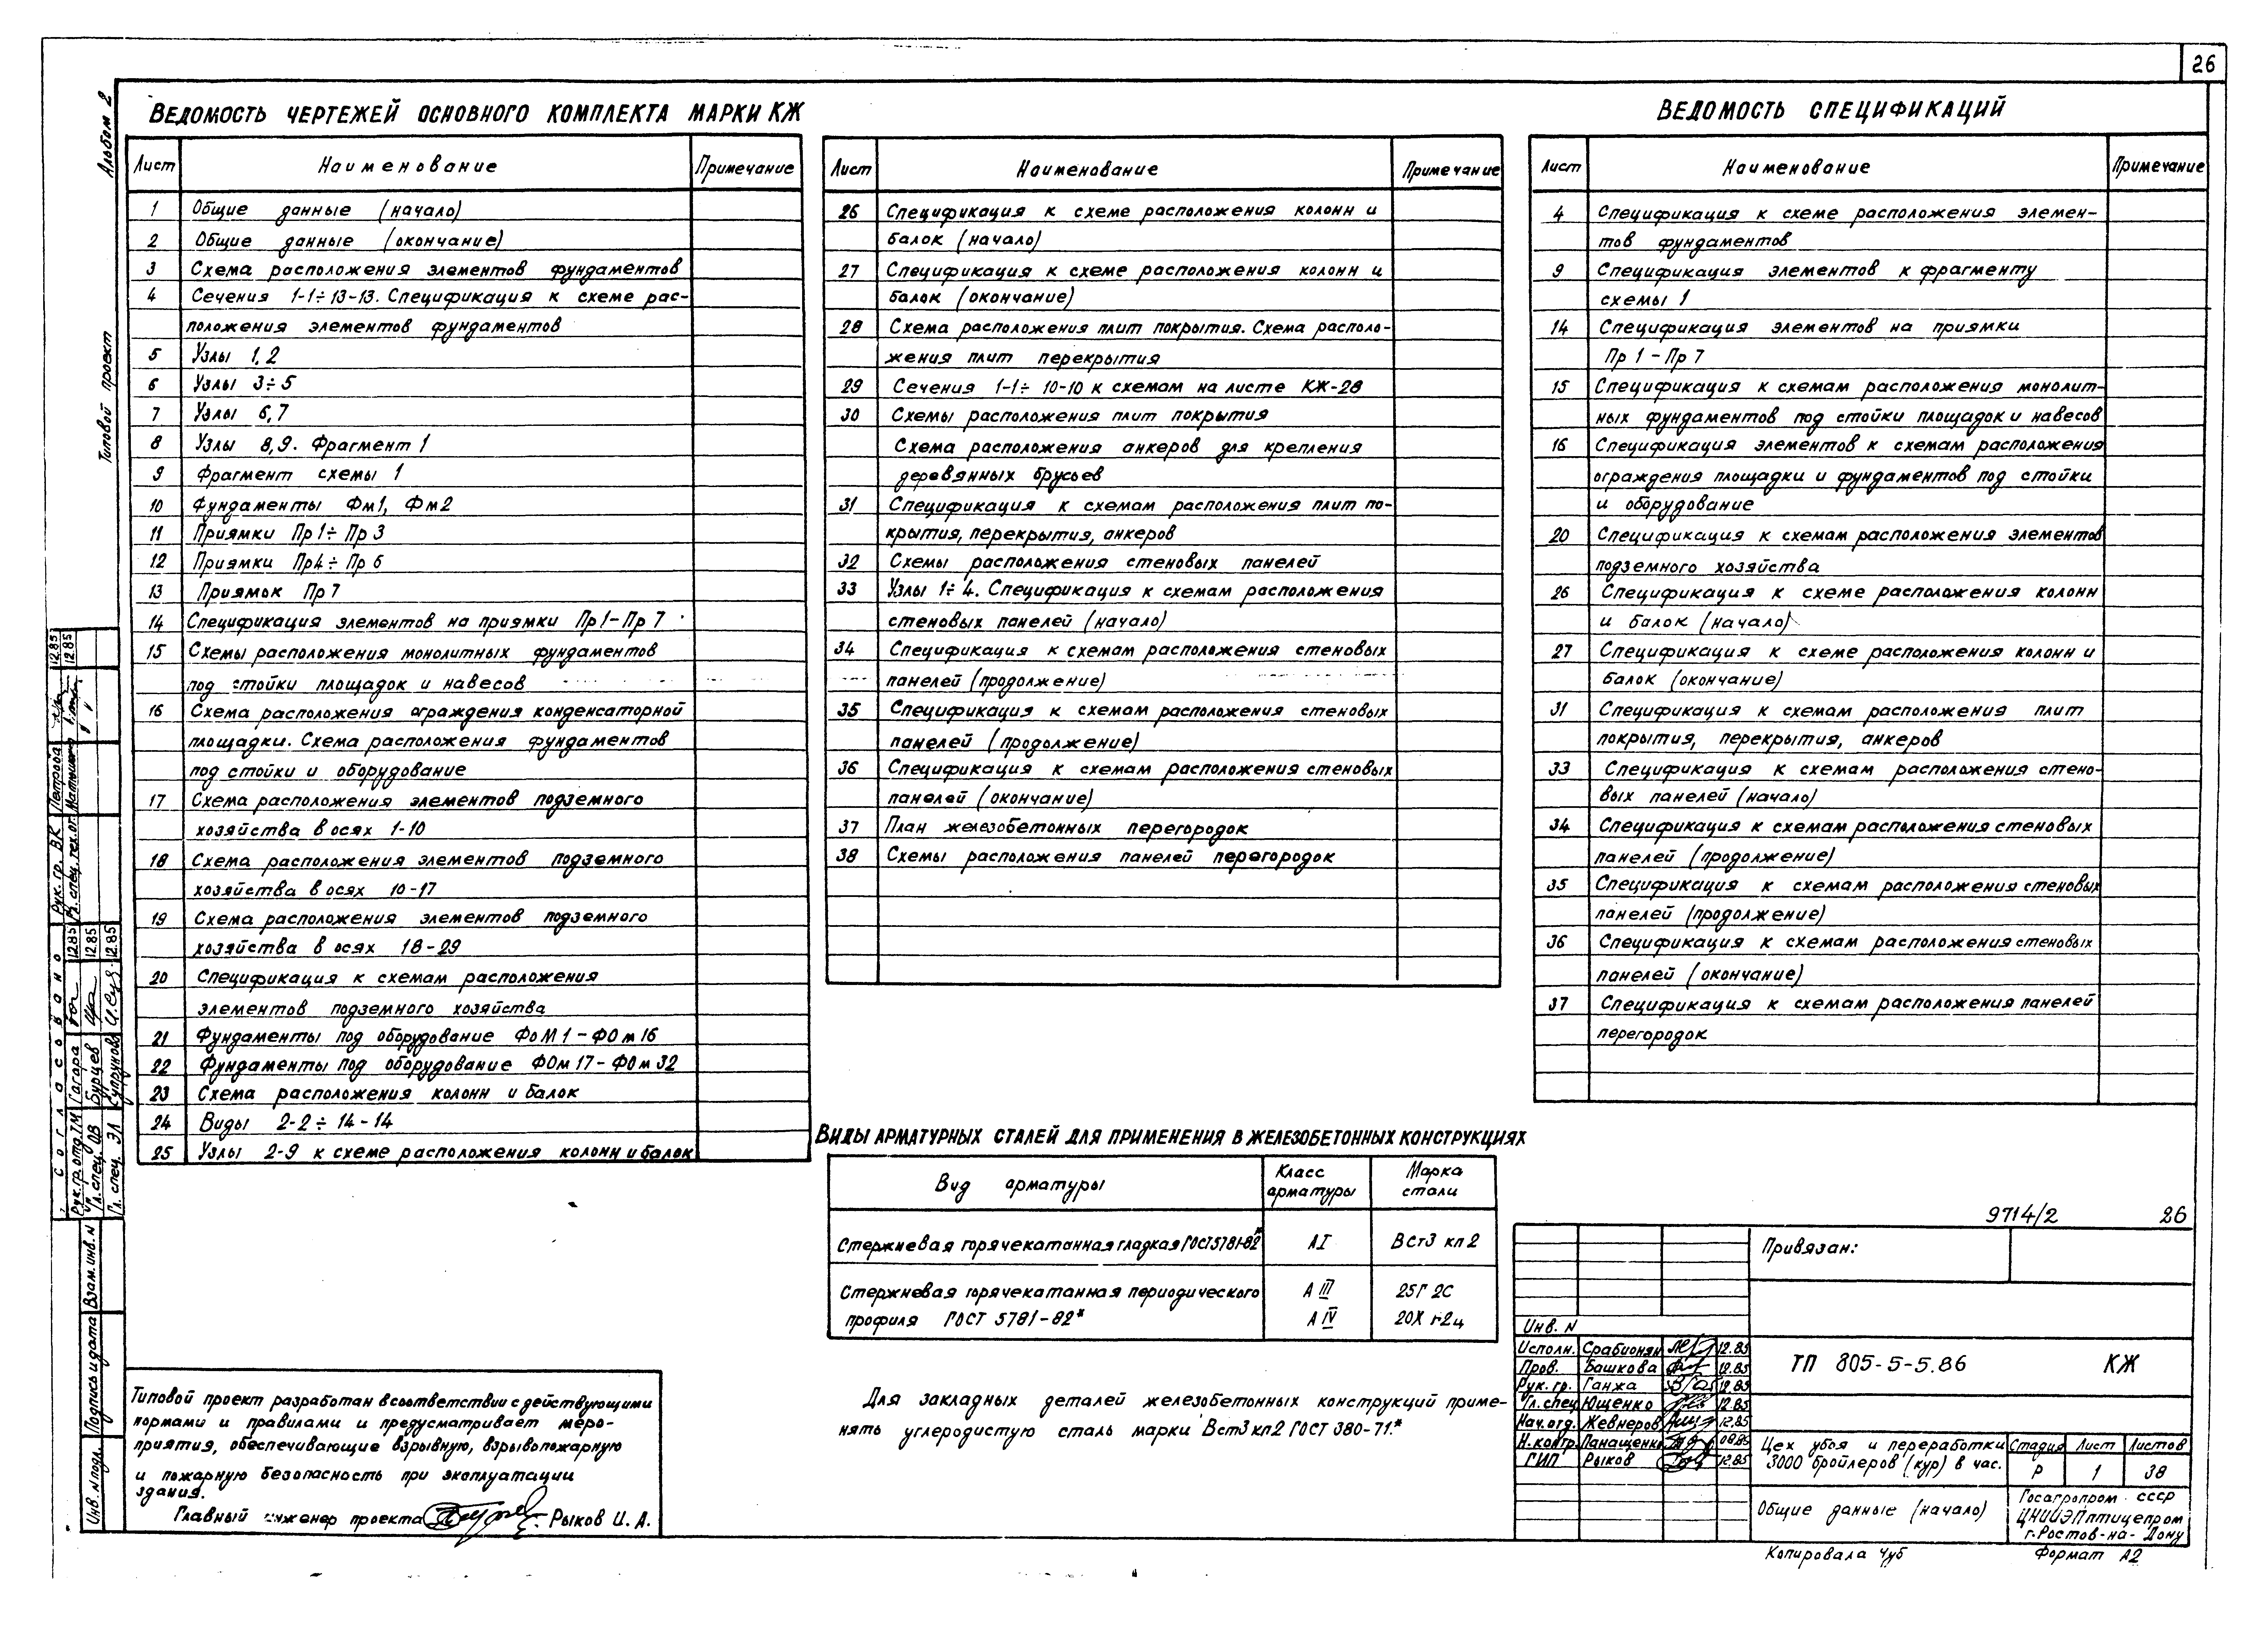 26
Альбом 2
Типовой проект
Ведомость чертежей основного комплекта марки КЖ
Лист Наименование Примечание
1 Общие данные (начало)
2 Общие данные (окончание)
3 Схема расположения элементов фундаментов
4 Сечения 1-1÷13-13. Спецификация к схеме рас-
положения элементов фундаментов
5 Узлы 1, 2
6 Узлы 3÷5
7 Узлы 6, 7
8 Узлы 8, 9. Фрагмент 1
9 Фрагмент схемы 1
10 Фундаменты Фм1, Фм2
11 Приямки Пр1÷Пр3
12 Приямки Пр4÷Пр6
13 Приямок Пр7
14 Спецификация элементов на приямки Пр1-Пр7
15 Схемы расположения монолитных фундаментов
под стойки площадок и навесов
16 Схема расположения ограждения конденсаторной
площадки. Схема расположения фундаментов
под стойки и оборудование
17 Схема расположения элементов подземного
хозяйства в осях 1-10
18 Схема расположения элементов подземного
хозяйства в осях 10-17
19 Схема расположения элементов подземного
хозяйства в осях 18-29
20 Спецификация к схемам расположения
элементов подземного хозяйства
21 Фундаменты под оборудование ФоМ1-ФОм16
22 Фундаменты под оборудование ФОм17-ФОм32
23 Схема расположения колонн и балок
24 Виды 2-2÷14-14
25 Узлы 2-9 к схеме расположения колонн и балок
Лист Наименование Примечание
26 Спецификация к схеме расположения колонн и
балок (начало)
27 Спецификация к схеме расположения колонн и
балок (окончание)
28 Схема расположения плит покрытия. Схема располо-
жения плит перекрытия
29 Сечения 1-1÷10-10 к схемам на листе КЖ-28
30 Схемы расположения плит покрытия
Схема расположения анкеров для крепления
деревянных брусьев
31 Спецификация к схемам расположения плит по-
крытия, перекрытия, анкеров
32 Схемы расположения стеновых панелей
33 Узлы 1÷4. Спецификация к схемам расположения
стеновых панелей (начало)
34 Спецификация к схемам расположения стеновых
панелей (продолжение)
35 Спецификация к схемам расположения стеновых
панелей (продолжение)
36 Спецификация к схемам расположения стеновых
панелей (окончание)
37 План железобетонных перегородок
38 Схемы расположения панелей перегородок
Ведомость спецификаций
Лист Наименование Примечание
4 Спецификация к схеме расположения элемен-
тов фундаментов
9 Спецификация элементов к фрагменту
схемы 1
14 Спецификация элементов на приямки
Пр1-Пр7
15 Спецификация к схемам расположения монолит-
ных фундаментов под стойки площадок и навесов
16 Спецификация элементов к схемам расположения
ограждения площадки и фундаментов под стойки
и оборудование
20 Спецификация к схемам расположения элементов
подземного хозяйства
26 Спецификация к схеме расположения колонн
и балок (начало)
27 Спецификация к схеме расположения колонн и
балок (окончание)
31 Спецификация к схемам расположения плит
покрытия, перекрытия, анкеров
33 Спецификация к схемам расположения стено-
вых панелей (начало)
34 Спецификация к схемам расположения стеновых
панелей (продолжение)
35 Спецификация к схемам расположения стеновых
панелей (продолжение)
36 Спецификация к схемам расположения стеновых
панелей (окончание)
37 Спецификация к схемам расположения панелей
перегородок
Виды арматурных сталей для применения в железобетонных конструкциях
Вид арматуры Класс арматуры Марка стали
Стержневая горячекатанная гладкая ГОСТ 5781-82* АI ВСт3 кп2
Стержневая горячекатанная периодического А III 25Г2С
профиля ГОСТ 5781-82* А IV 20Х г2ц
Для закладных деталей железобетонных конструкций приме-
нять углеродистую сталь марки Вст3кп2 ГОСТ 380-71.*
Типовой проект разработан в соответствии с действующими
нормами и правилами и предусматривает меро-
приятия, обеспечивающие взрывную, взрывопожарную
и пожарную безопасность при эксплуатации
здания.
Главный инженер проекта Рыков И. А.
Согласовано
Рук. гр. отд. ТМ Гагара 12.85
Гл. спец. ОВ Бурцев 12.85
Гл. спец. ЭЛ Супрунова 12.85
Рук. гр. ВК Петрова 12.85
12.85
Взам. инв. N
Подпись и дата
Инв. N подл.
9714/2 26
Привязан:
Инв. N
Исполн. Срабионян 12.85
Пров. Башкова 12.85
Рук. гр. Ганжа 12.85
Гл. спец Ющенко 12.85
Нач. отд. Жевнеров 12.85
Н. контр. Панащенко 08.85
ГИП Рыков 12.85
ТП 805-5-5.86 КЖ
Цех убоя и переработки
3000 бройлеров (кур) в час.
Стадия Лист Листов
Р 1 38
Общие данные (начало)
Госагропром СССР
ЦНИИЭПптицепром
г. Ростов-на-Дону
Копировала Чуб Формат А2